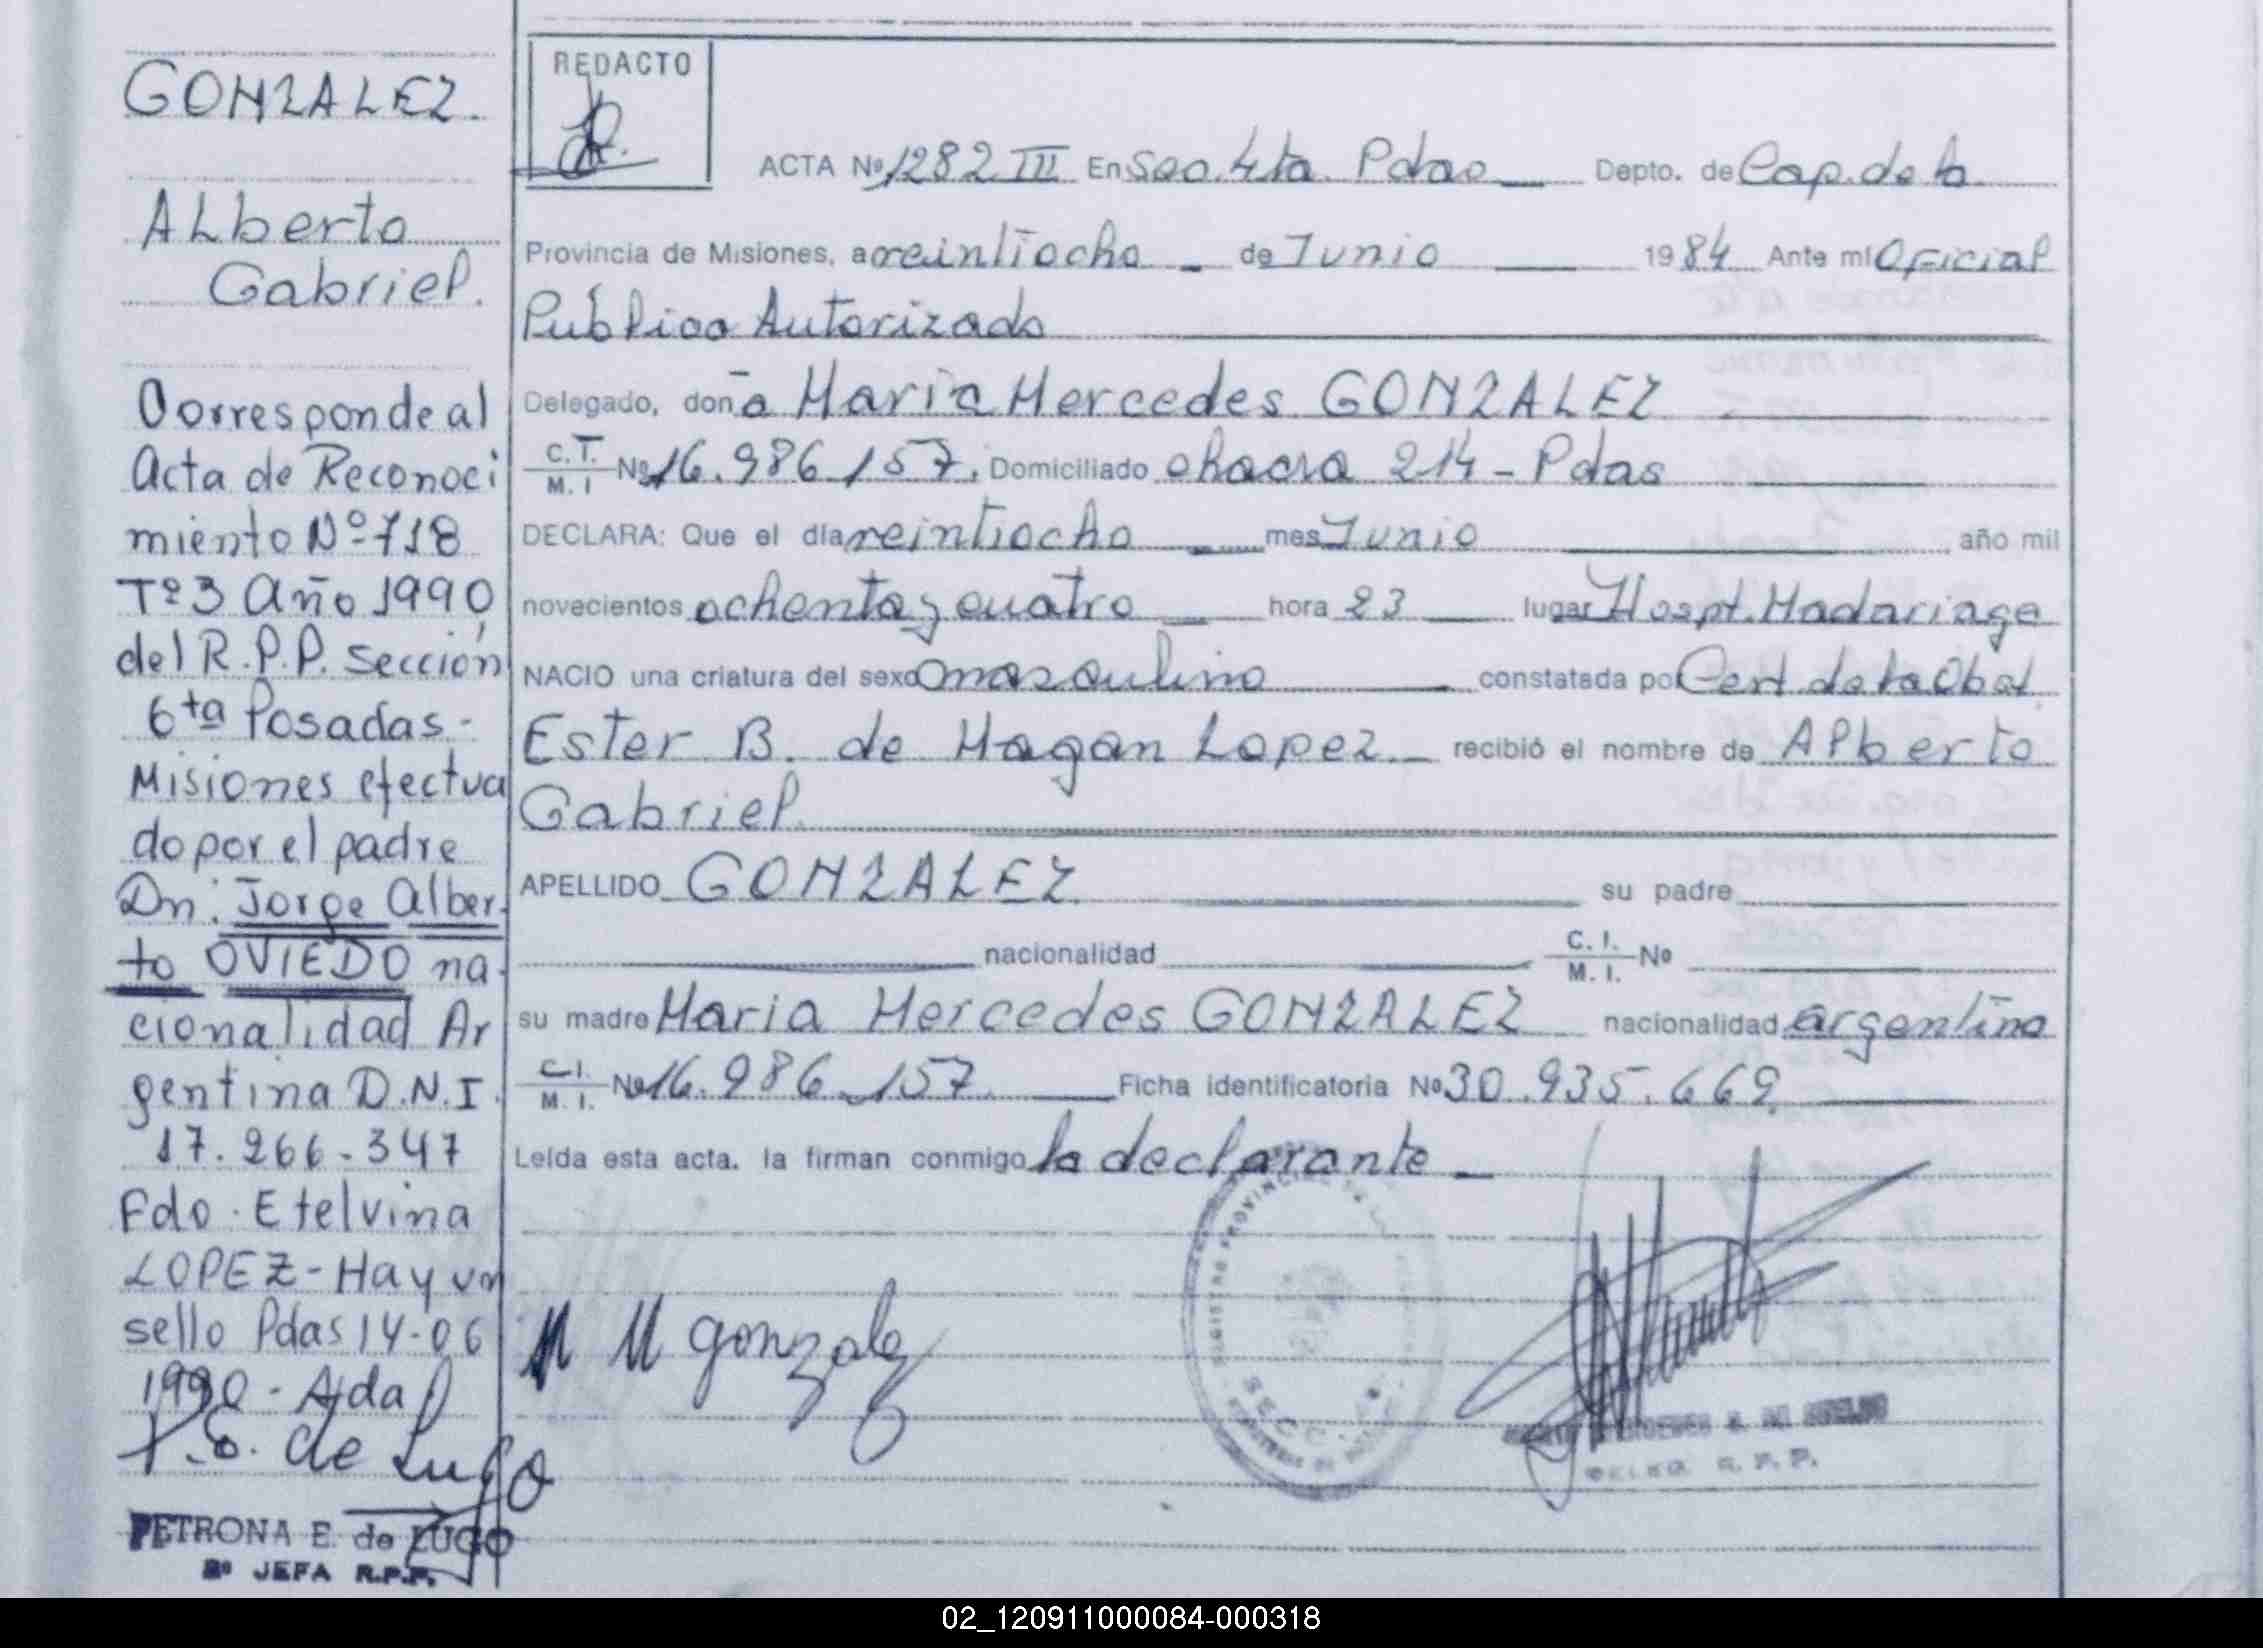 GONZALEZ.
Alberto
Gabriel.
Corresponde al
Acta de Reconoci
miento Nº 718
Tº 3 Año 1990,
del R.P.P. Sección
6ta Posadas-
Misiones efectua
do por el padre
Dn. Jorge Alber-
to OVIEDO na-
cionalidad Ar
gentina D.N.I.
17.266.347
Fdo. Etelvina
LOPEZ - Hay un
sello Pdas 14-06
1990 - Ada
P.E. de Lugo
PETRONA E. de LUGO
2º JEFA R.P.P.
REDACTO
ACTA Nº 1282 III En Sec. 4ta. Pdas Depto. de Cap. de la
Provincia de Misiones, a veintiocho de Junio 1984 Ante mí Oficial
Público Autorizado
Delegado, doña María Mercedes GONZALEZ
C.I. M.I. Nº 16.986.157. Domiciliado chacra 214 - Pdas
DECLARA: Que el día veintiocho mes Junio año mil
novecientos ochenta y cuatro hora 23 lugar Hospt. Madariaga
NACIO una criatura del sexo masculino constatada por Cert. de la Obst.
Ester B. de Hagan Lopez. recibió el nombre de Alberto
Gabriel.
APELLIDO GONZALEZ su padre
nacionalidad C.I. M.I. Nº
su madre María Mercedes GONZALEZ nacionalidad argentina
C.I. M.I. Nº 16.986.157. Ficha identificatoria Nº 30.935.669.
Leída esta acta, la firman conmigo la declarante
M M gonzalez
REGISTRO PROVINCIAL
SECC.
R.P.P.
02_120911000084-000318